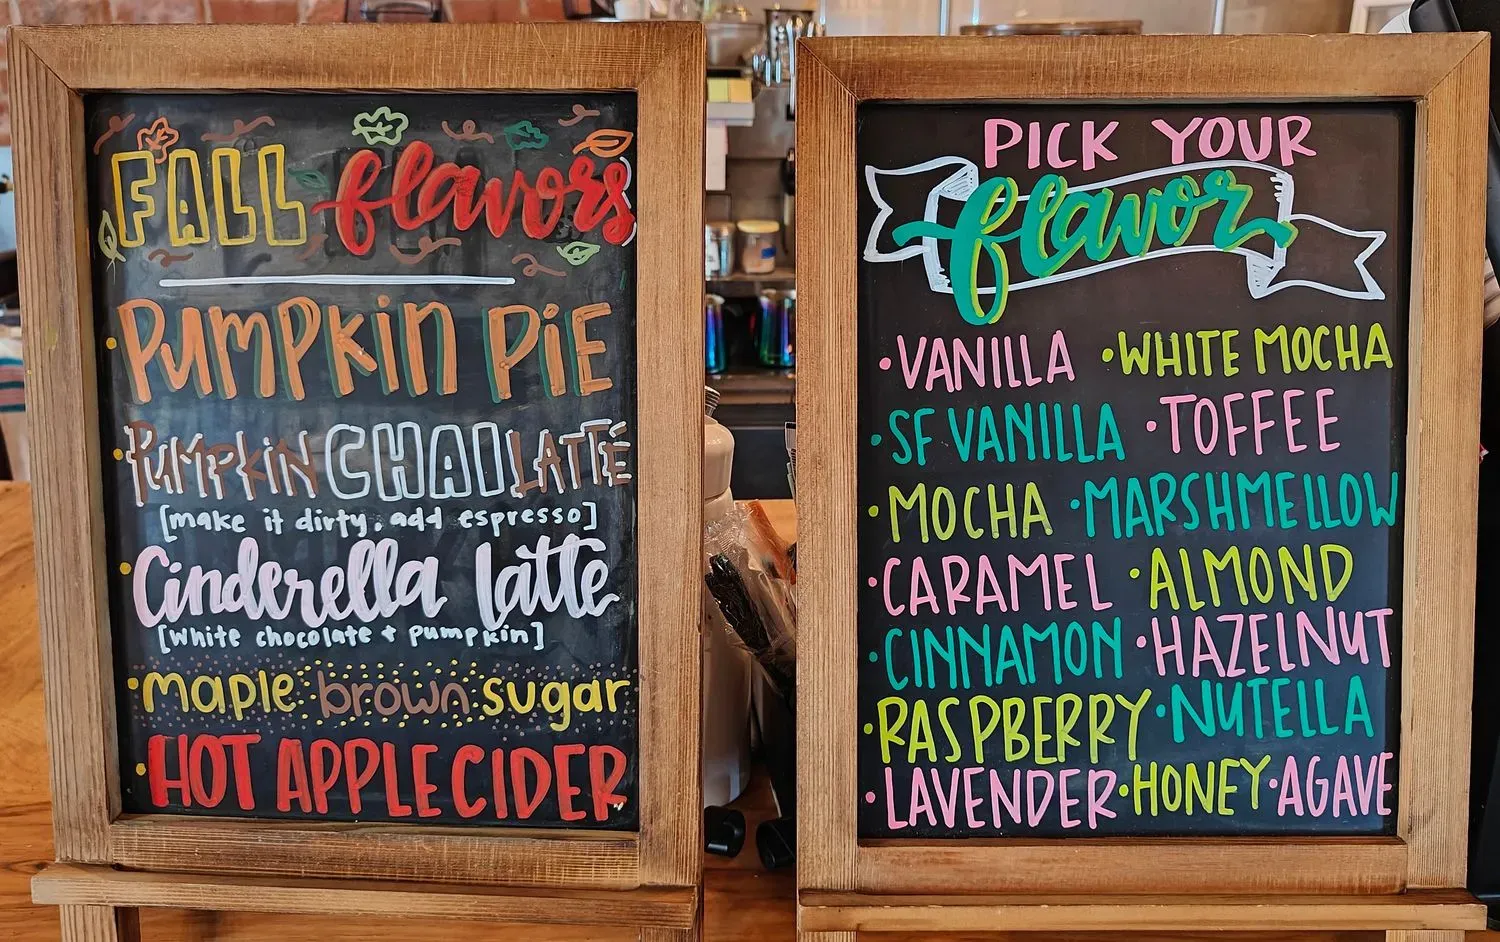 FALL flavors
• PUMPKIN PiE
• PUMPKIN CHAI LATTÉ
[make it dirty, add espresso]
• Cinderella latte
[white chocolate + pumpkin]
• maple brown sugar
• HOT APPLE CIDER
PICK YOUR
flavor
• VANILLA • WHITE MOCHA
• SF VANILLA • TOFFEE
• MOCHA • MARSHMELLOW
• CARAMEL • ALMOND
• CINNAMON • HAZELNUT
• RASPBERRY • NUTELLA
• LAVENDER • HONEY • AGAVE